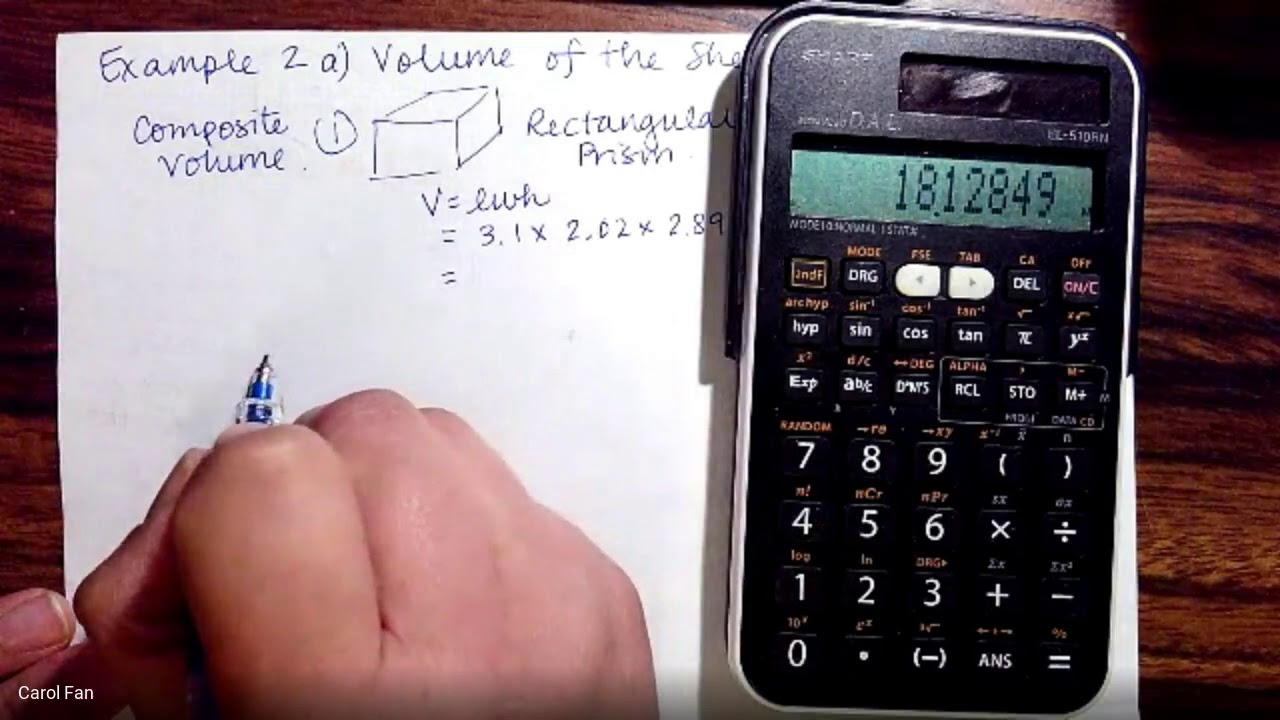 Example 2 a) Volume of the She
Composite
Volume.
①
Rectangular
Prism.
V = lwh
= 3.1 x 2.02 x 2.89
=
SHARP
D.A.L.
EL-510RN
18.12849 M
MODE 0:NORMAL 1:STAT
MODE FSE TAB CA OFF
2ndF DRG ◄ ► DEL ON/C
archyp sin⁻¹ cos⁻¹ tan⁻¹
hyp sin cos tan π yˣ
d/c ↔DEG ALPHA M-
Exp ab/c D°M'S RCL STO M+ M
DATA CD
RANDOM →rθ →xy n
7 8 9 ( )
n! nCr nPr sx σx
4 5 6 × ÷
log ln DRG▸ Σx Σx²
1 2 3 + −
10ˣ eˣ %
0 • (−) ANS =
Carol Fan